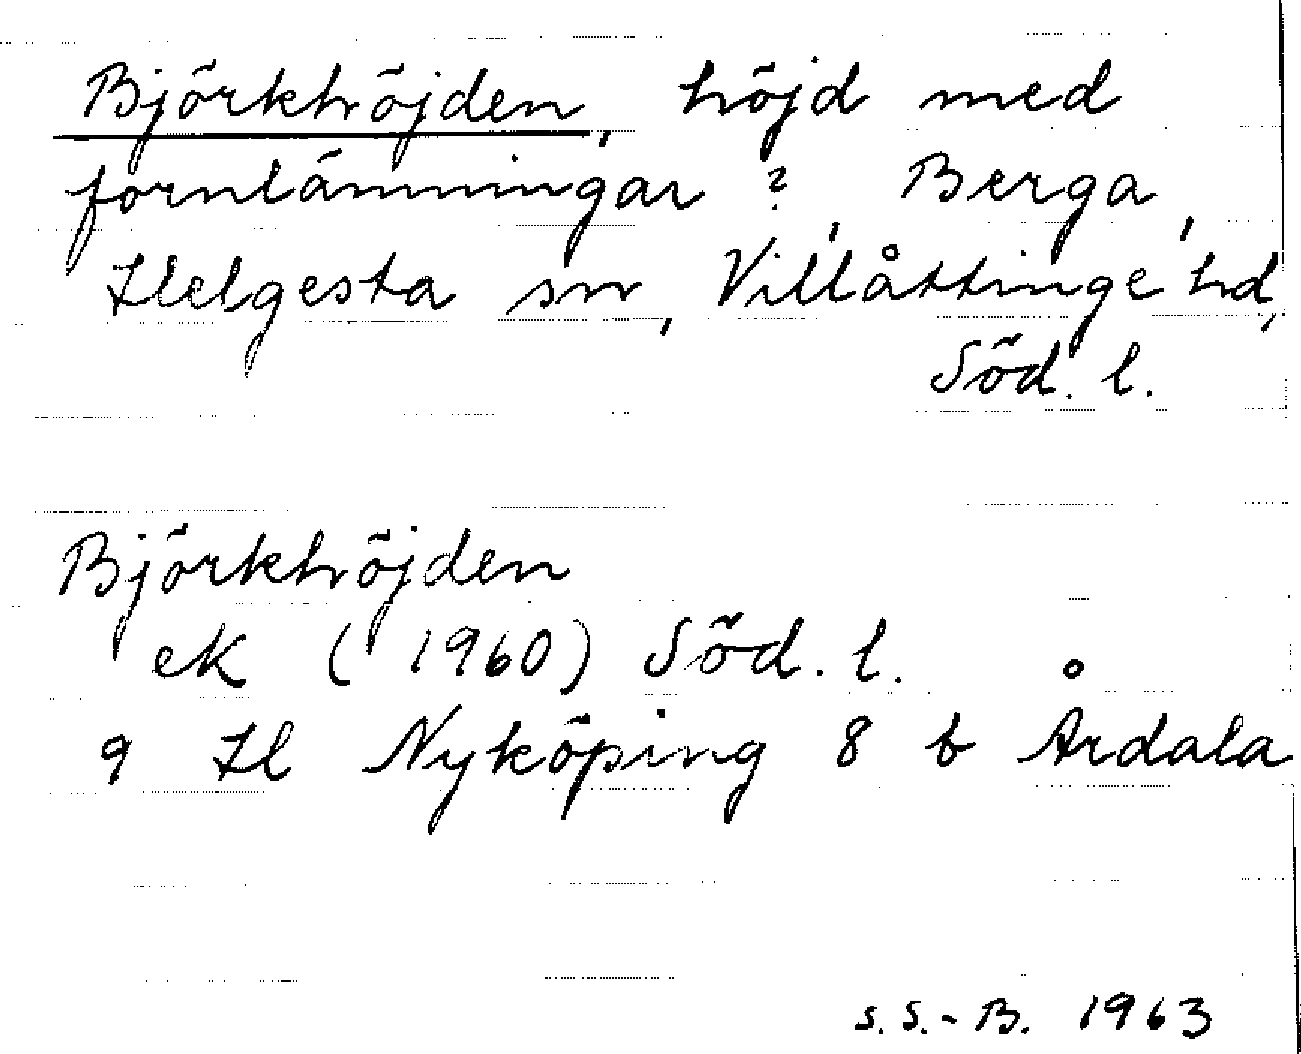 Björkhöjden, höjd med
fornlämningar ?, Berga,
Helgesta sn, Villåttinge hd,
Söd. l.
Björkhöjden
ek (1960) Söd. l.
9 H Nyköping 8 b Årdala
S. S.-B. 1963